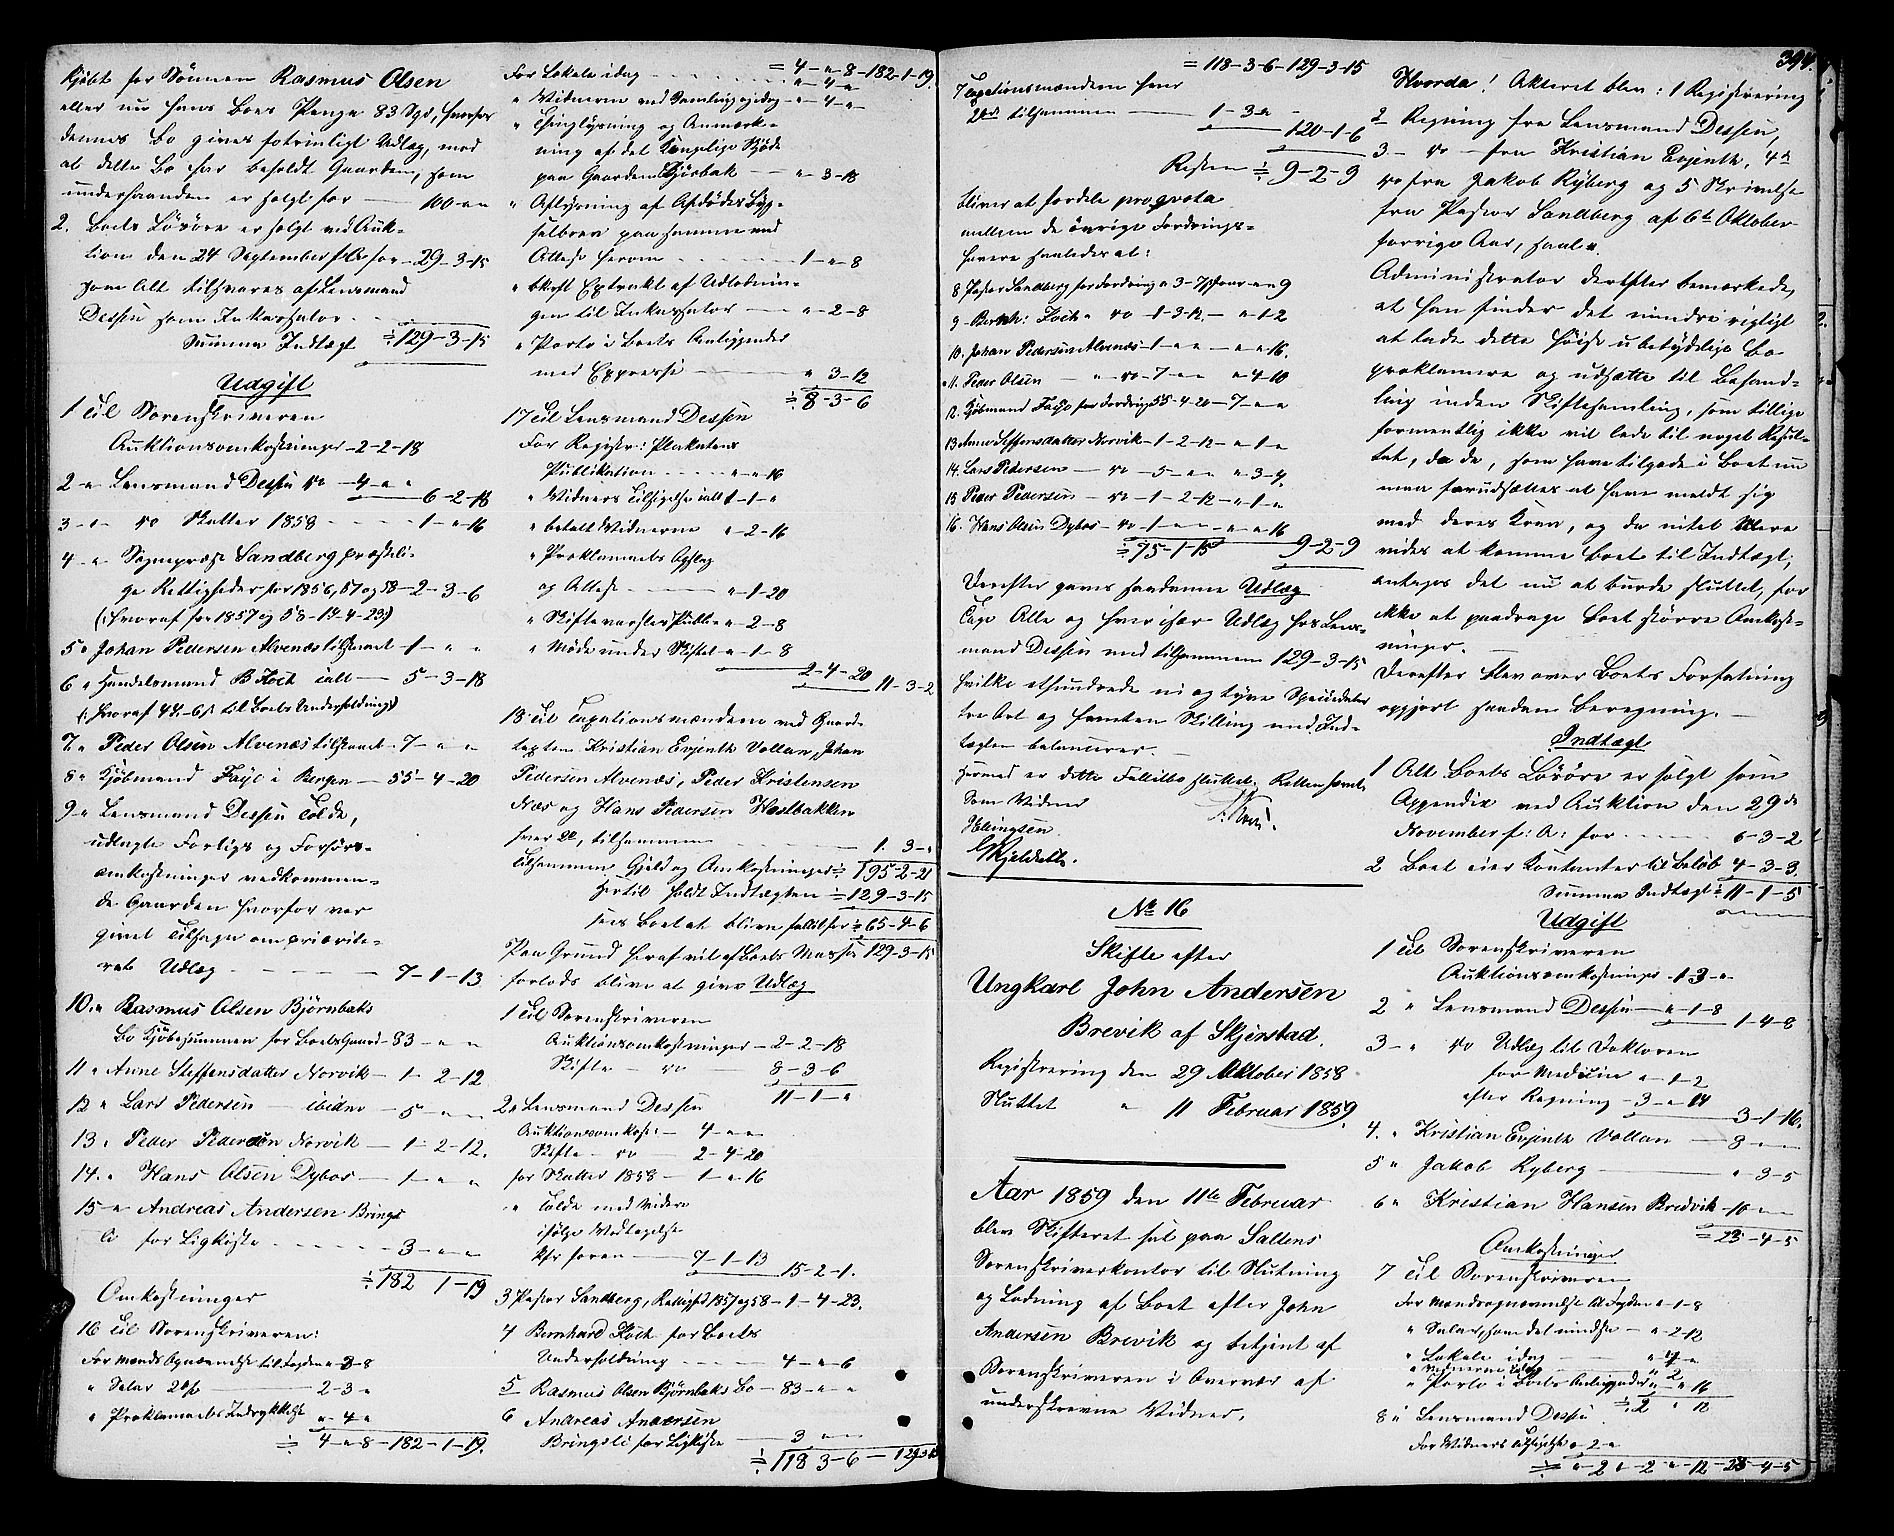 kjøbt for Sønnen Rasmus Olsen
eller nu hans Boes Penge 83 Spd, hvorfor
dennes Bo gives fortrinligt Udlæg, mod
at dette Bo har beholdt Gaarden, som
underhaanden er solgt for — 100 - " - "
2. Boets Løsøre er solgt ved Auk-
tion den 24 September f: A: for - 29-3-15
som Alt tilsvares af Lensmand
Dessen som Inkassator.
Summa Indtægt ÷ 129-3-15
Udgift
1 Til Sorenskriveren
Auktionsomkostninger - 2-2-18
2 - " Lensmand Dessen do - 4 - " "
6-2-18
3 - " - do Skatter 1858 - - - - 1 - " - 16
4 - " Sognepræst Sandberg præsteli-
ge Rettigheder for 1856, 57 og 58 - 2 - 3 - 6
(: hvoraf for 1857 og 58 - 1 - 4 - 23:)
5 " Johan Pedersen Alvenæs tilstaaet - 1 - " "
6 " Handelsmand B Koch ialt — 5-3-18
(: hvoraf 4 - " - 6 s til Boets Underholdning:)
7. " Peder Olsen Alvenæs tilstaaet - 7 - " "
8 " Kjøbmand Faye i Bergen — 55-4-20
9 - " Lensmand Dessen Tolde,
udlagte Forligs og Forhørs-
omkostninger vedkommen-
de Gaarden hvorfor var
givet Tilsagn om priorite-
ret Udlæg — 7-1-13
10. " Rasmus Olsen Bjørnbaks
Bo Kjøbesummen for Boets Gaard - 83 - " "
11 " Anne Steffensdatter Norvik - 1 - 2-12
12 " Lars Pedersen — ibidem — 5 - " - "
13 " Peder Pedersen Norvik — 1-2-12.
14. " Hans Olsen Dybos — 1 - " "
15 - " Andreas Andersen Brings
li for Ligkiste - - - - 3 - " - "
÷ 182 1-19
Omkostninger
16 Til Sorenskriveren:
For Mænds Opnævnelse til Taxten " 3-8
" Salar 2 % — 2-3 "
" Proklamaets Indrykkelse " - 4 "
÷ 4 - " 8 - 182-1-19.
= 4 - " - 8 - 182-1-19.
For Lokale idag - - - - " - 4 "
" Vidnerne ved Samling og idag - " - 4 - "
" Thinglysning og Anmærk-
ning af det kongelige Skjøde
paa Gaarden Bjørbak — " - 3-18
" Aflysning af Afdødes Byg-
selbrev paa samme med
Attest herom - - - - 1 - " - 8
" bekræft Extrakt af Udlodnin-
gen til Inkassator — " - 2-8
" Porto i Boets Anliggender
med Expresse — " 3-12
÷ 8-3-6
17 Til Lensmand Dessen
For Registr: Plakatens
Publikation - - - - " - " - 16
" Vidners Tilsigelse ialt 1 - 1 - "
" betalt Vidnerne " - 2-16
" Proklamaets Opslag
og Attest — " - 1-20
" Skiftevarsler Publ - " " - 2-8
" Møde under Skiftet " - 1 - 8
2-4-20 11-3-2
18 Til Taxationsmændene ved Gaard-
taxten Kristian Evjenth Vollan, Johan
Pedersen Alvenæs, Peder Kristensen
Næs og Hans Pedersen Hestbakken
hver 2 d, tilsammen - - - - 1. 3 - "
Tilsammen Gjeld og Omkostninger ÷ 195-2-21
Hertil holdt Indtægten ÷ 129-3-15
sees Boet at blive fallit for ÷ 65-4-6
Paa Grund heraf vil af Boets Masse 129-3-15
forlods blive at give Udlæg
1 Til Sorenskriveren
Auktionsomkostninger - 2-2-18
Skifte — do — 8-3-6
11-1-"
2 " Lensmand Dessen
Auktionsomkost: - 4 - " "
Skifte - do - 2-4-20
for Skatter 1858 - 1 - " 16
" Tolde med Videre
ifølge Vedtagelse
her foran — 7-1-13
15-2-1.
3 Pastor Sandberg, Rettighed 1857 og 58 - 1 - 4 - 23.
4 Bernhard Koch for Boets
Underholdning - - - 4 - " - 6
5 Rasmus Olsen Bjørnbaks Bo - 83 - " "
6 Andreas Andersen
Bringsli for Ligkiste — 3 - " "
÷ 118 3-6 - 129-3-15
= 118-3-6-129-3-15
7 Taxationsmændene hver
2 d tilsammen — 1-3-"
120-1-6
Resten ÷ 9-2-9
bliver at fordele pro rota
mellem de øvrige Fordrings-
havere saaledes at:
8 Pastor Sandberg for Fordring " 3-7 faar " " 9
9 - Bernh: Koch " do 1-3-12 - " 1-2
10. Johan Pedersen Alvenæs - 1 - " " — " " 16.
11. Peder Olsen — " do - 7 - " " " 4-10
12. Kjøbmand Faye for Fordring 55-4-20 - 7 - " "
13 Anne Steffensdatter Norvik - 1-2-12 - " 1 "
14. Lars Pedersen — do — 5 - " " " 3-4.
15 Peder Pedersen - do - 1-2-12 - " 1 "
16. Hans Olsen Dybos - do - 1 - " " — " " 16
÷ 75-1-15 9-2-9
Derefter gaves saadanne Udlæg
Tage Alle og hver især Udlæg hos Lens-
mand Dessen med tilsammen 129-3-15
hvilke ethundrede ni og tyve Speciedaler
tre Ort og femten Skilling med Ind-
tægten balancerer.
Hermed er dette Fallitbo sluttet, Retten hævet
Som Vidner
Ellingsen.
GKjeldseth.
No 16
Skifte efter
Ungkarl John Andersen
Brevik af Skjerstad.
Registrering den 29 Oktober 1858
Sluttet " 11 Februar 1859.
Aar 1859 den 11te Februar
blev Skifteret sat paa Saltens
Sorenskriverkontor til Slutning
og Lodning af Boet efter John
Andersen Brevik og betjent af
Sorenskriveren i Overvær af
underskrevne Vidner.
394.
Hvorda! Akteret blev: 1 Registrering
2 Regning fra Lensmand Dessen,
3 - do - fra Kristian Evjenth, 4 "
do fra Jakob Ryberg og 5 Skrivelse
fra Pastor Sandberg af 6te Oktober
forrige Aar, saal.
Administrator derefter bemærkede,
at han finder det mindre rigtigt
at lade dette høist ubetydelige Bo
proklamere og udsætte til Behand-
ling inden Skiftesamling, som tillige
formentlig ikke vil lede til noget Resul-
tat, da de, som have tilgode i Boet nu
maa forudsættes at have meldt sig
med deres Krav, og da intet Mere
vides at komme Boet til Indtægt,
antages det nu at burde sluttet, for
ikke at paadrage Boet større Omkost-
ninger.
Derefter blev over Boets Forfatning
opgjort saadan Beregning.
Indtægt
1 Alt Boets Løsøre er solgt som
Appendix ved Auktion den 29de
November f: A: for - - - - 6-3-2
2 Boet eier Kontanter til Beløb 4-3-3.
Summa Indtægt ÷ 11-1-5
Udgift
1 Til Sorenskriveren
Auktionsomkostninger - 1-3-"
2 " Lensmand Dessen — " - 1-8
1-4-8
3 - " do Udlæg til Doktoren
for Medicin " - 1-2
efter Regning - 3 - " 14
3-1-16.
4. " Kristian Evjenth Vollan — 8 - " -
5 " Jakob Ryberg — " 3-5
6 " Kristian Hansen Bredvik - 10 - " -
÷ 23-4-5
Omkostninger
7 Til Sorenskriveren
For Mændsopnævnelse til Taxten " - 1-8
" Salar, som det mindste — " - 2-12
" Lokale idag — " 4 "
" Vidnerne idag — " 2
" Porto i Boets Anliggender " - " 16
÷ 2 " 12
8 " Lensmand Dessen
For Vidners Tilsigelse " - 2 - "
÷ " - 2 " - 2 " - 12 - 23-4-5